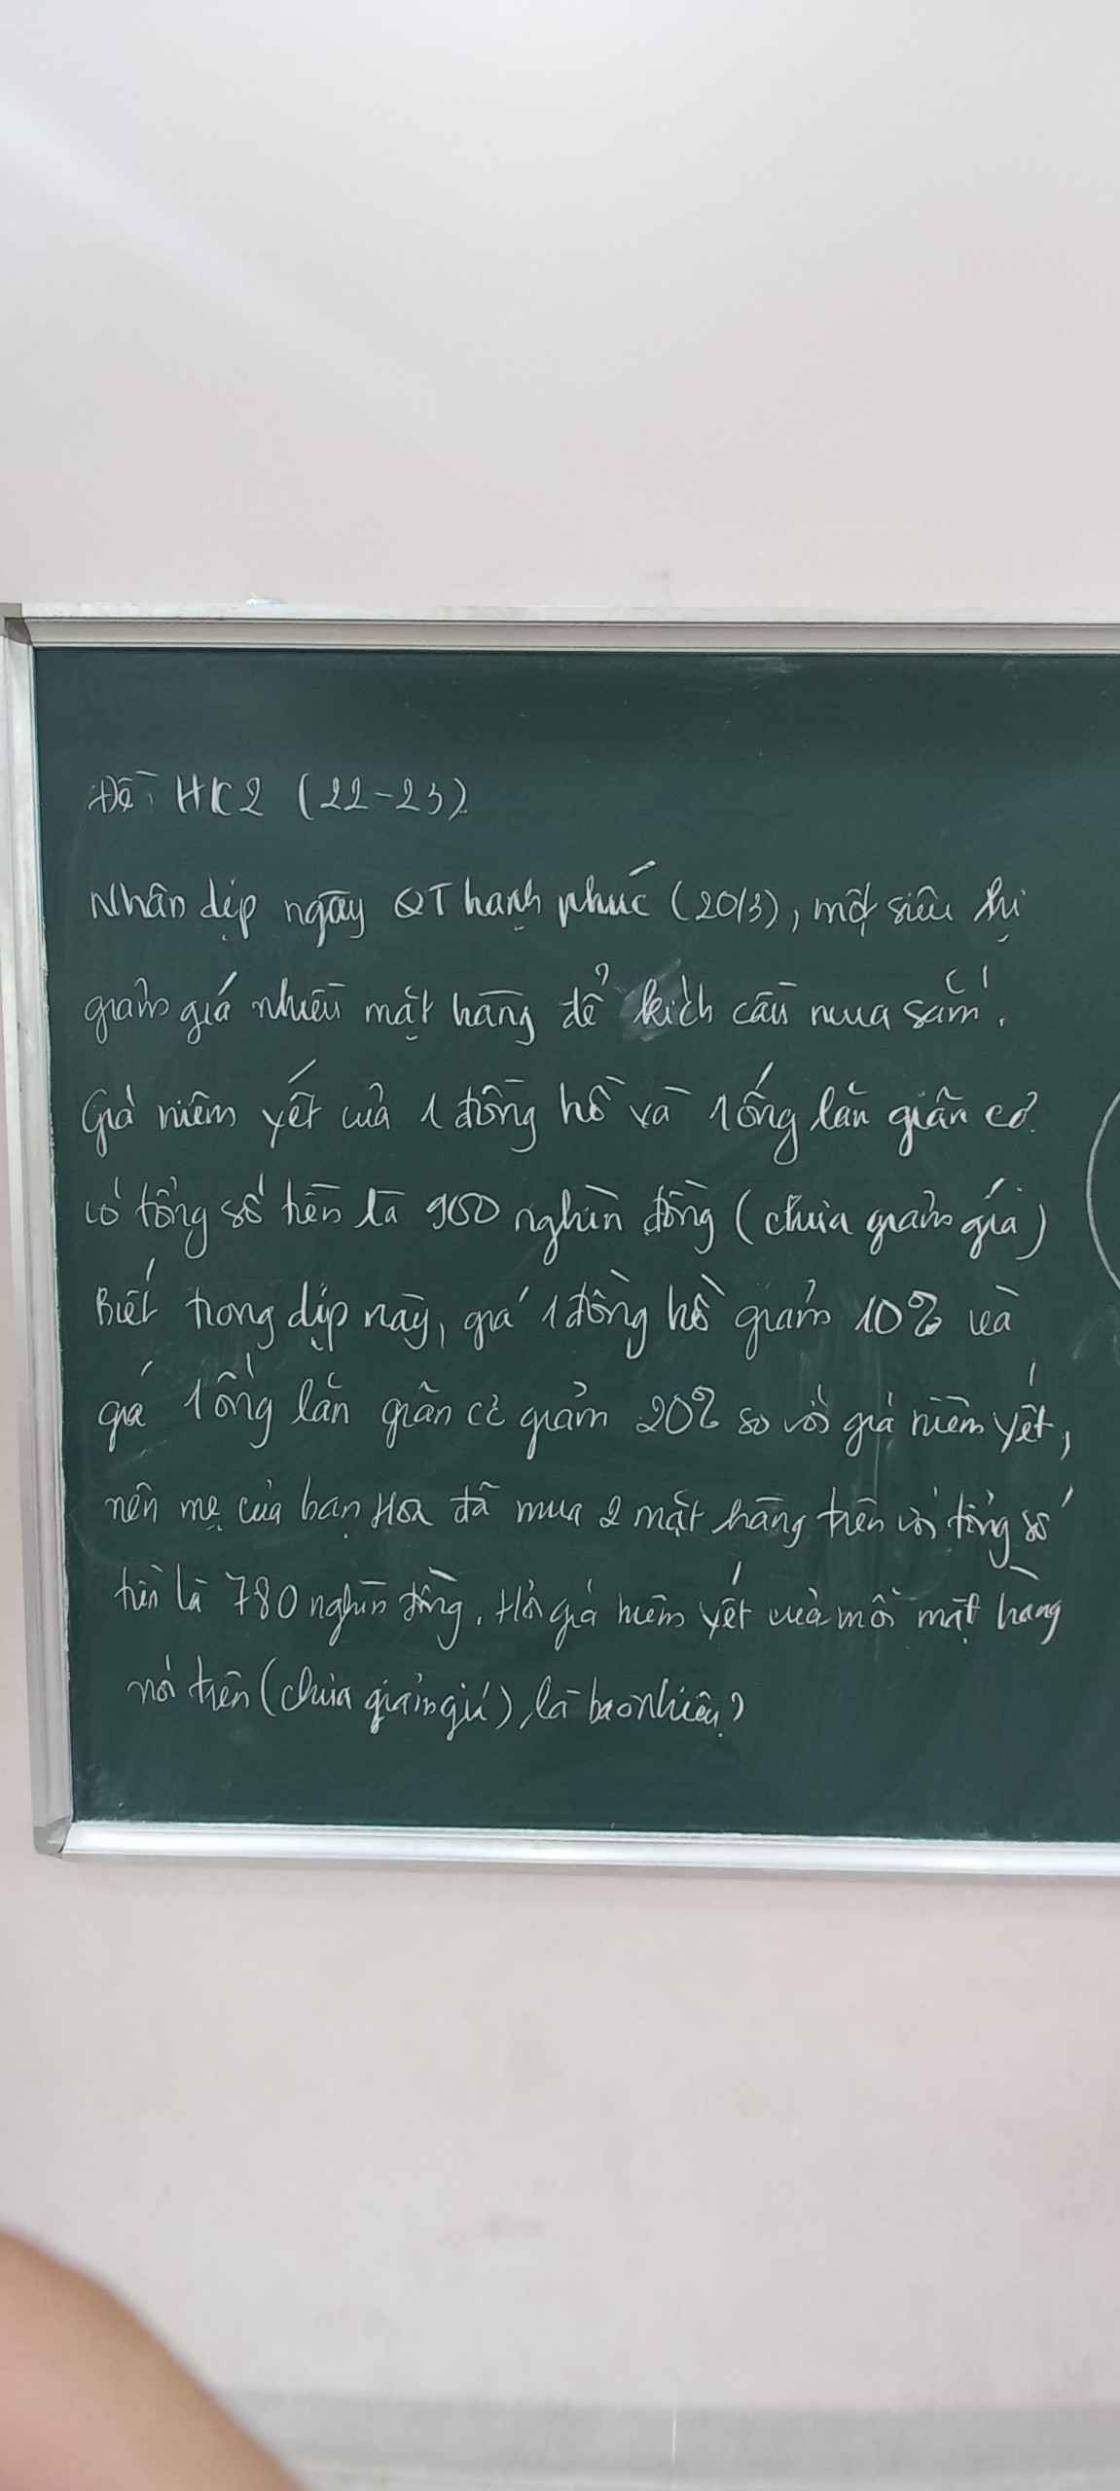 Đề HK2 (22-23)
Nhân dịp ngày QT hạnh phúc (20/3), một siêu thị
giảm giá nhiều mặt hàng để kích cầu mua sắm.
Giá niêm yết của 1 đồng hồ và 1 ống lăn giãn cơ
có tổng số tiền là 900 nghìn đồng (chưa giảm giá)
Biết trong dịp này, giá 1 đồng hồ giảm 10% và
giá 1 ống lăn giãn cơ giảm 20% so với giá niêm yết,
nên mẹ của bạn Hoa đã mua 2 mặt hàng trên với tổng số
tiền là 780 nghìn đồng. Hỏi giá niêm yết của mỗi mặt hàng
nói trên (chưa giảm giá), là bao nhiêu?